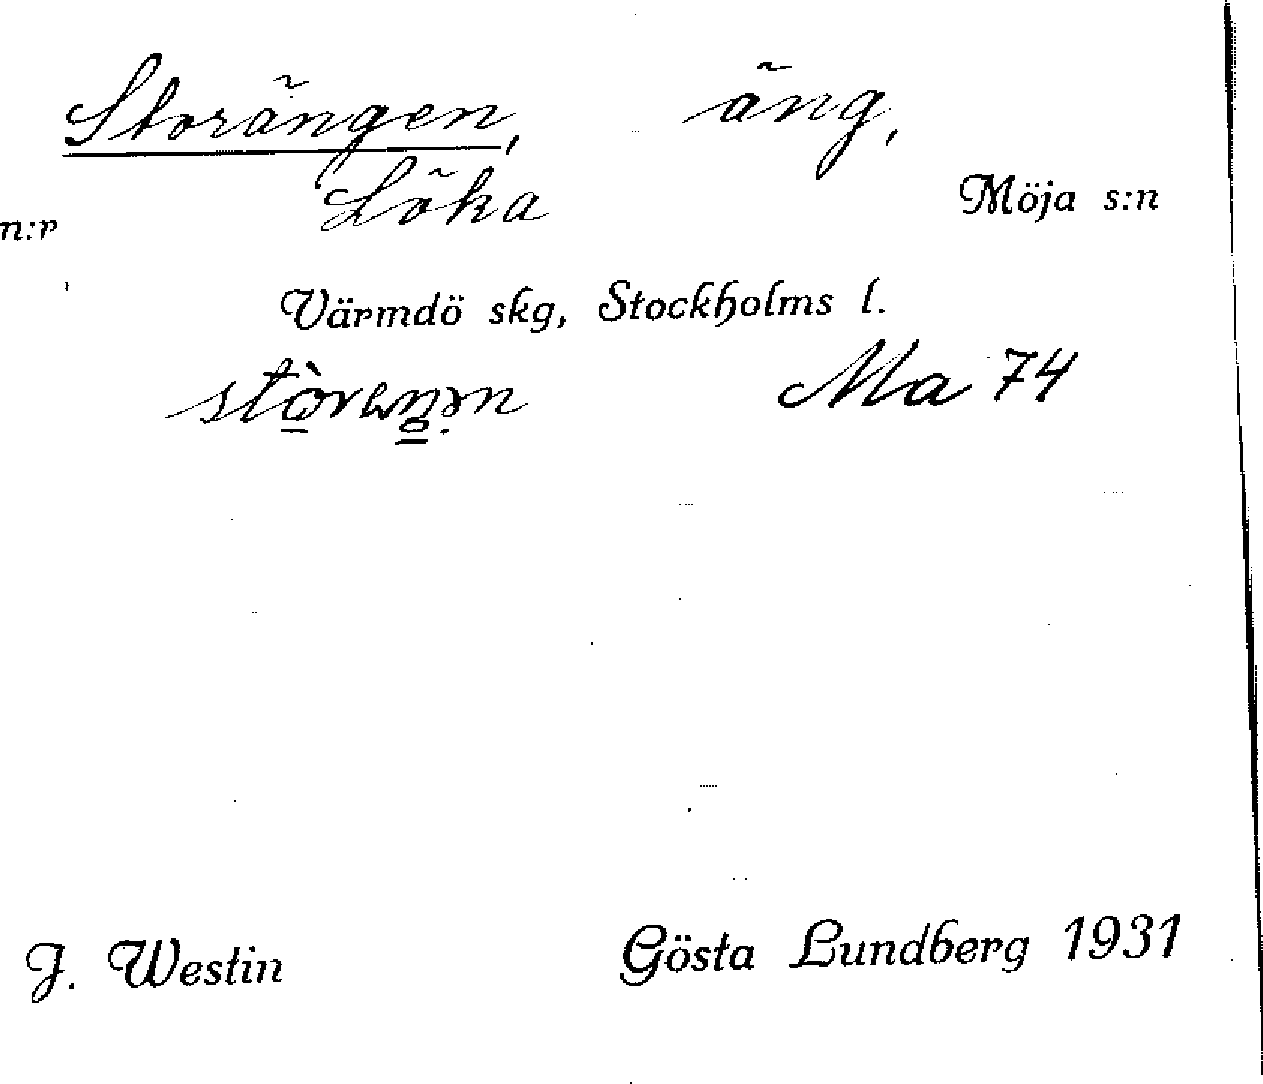 Storängen, äng,
Löka Möja s:n
n:r
Värmdö skg, Stockholms l.
Ma 74
J. Westin Gösta Lundberg 1931